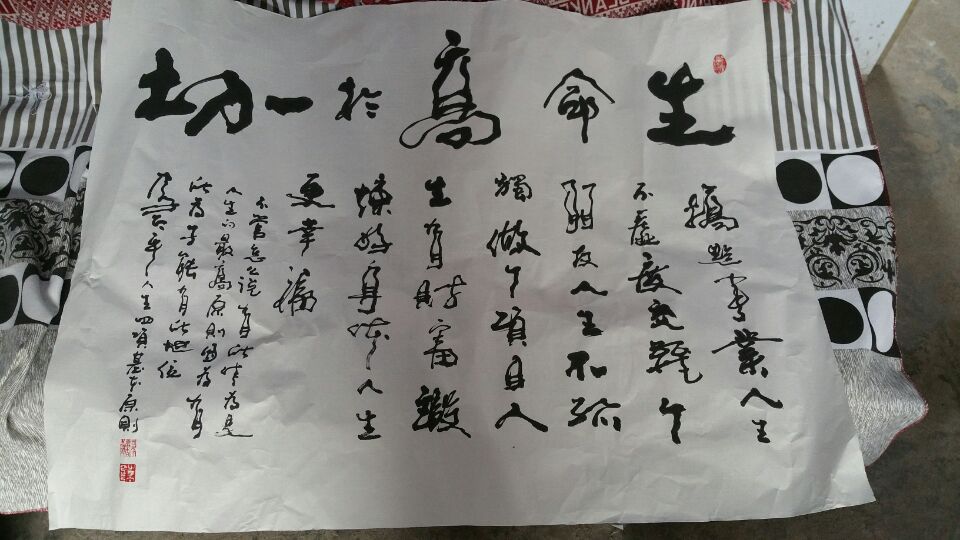 生命高於一切
搞點事業人生
不虛度交个
朋友人生不孤
獨做个項目人
生有財富鍛
煉好身体人生
更幸福
不管怎么說有此情為是
人生的最高原則因為有
此為才能有此地位
年人生四項基本原則